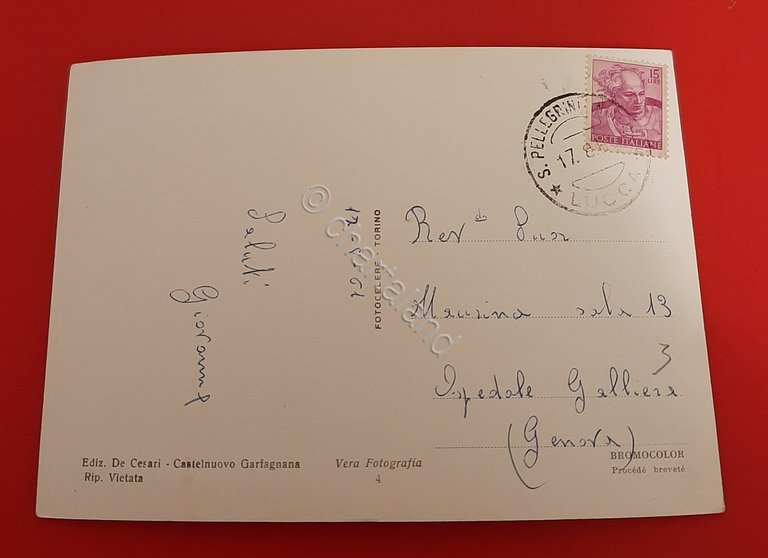 15
LIRE
POSTE ITALIANE
S. PELLEGRIN
17.8
LUCCA
Saluti
Giovanna
FOTOCELERE - TORINO
Rev da Suor
Maurina sala 13
3
Ospedale Galliera
(Genova)
© cartaland
Ediz. De Cesari - Castelnuovo Garfagnana
Rip. Vietata
Vera Fotografia
4
BROMOCOLOR
Procédé breveté